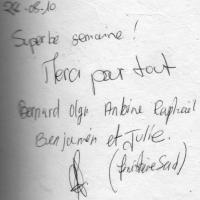 22-08-10
Superbe semaine !
Merci pour tout
Bernard Olga Antoine Raphaël
Benjamin et Julie.